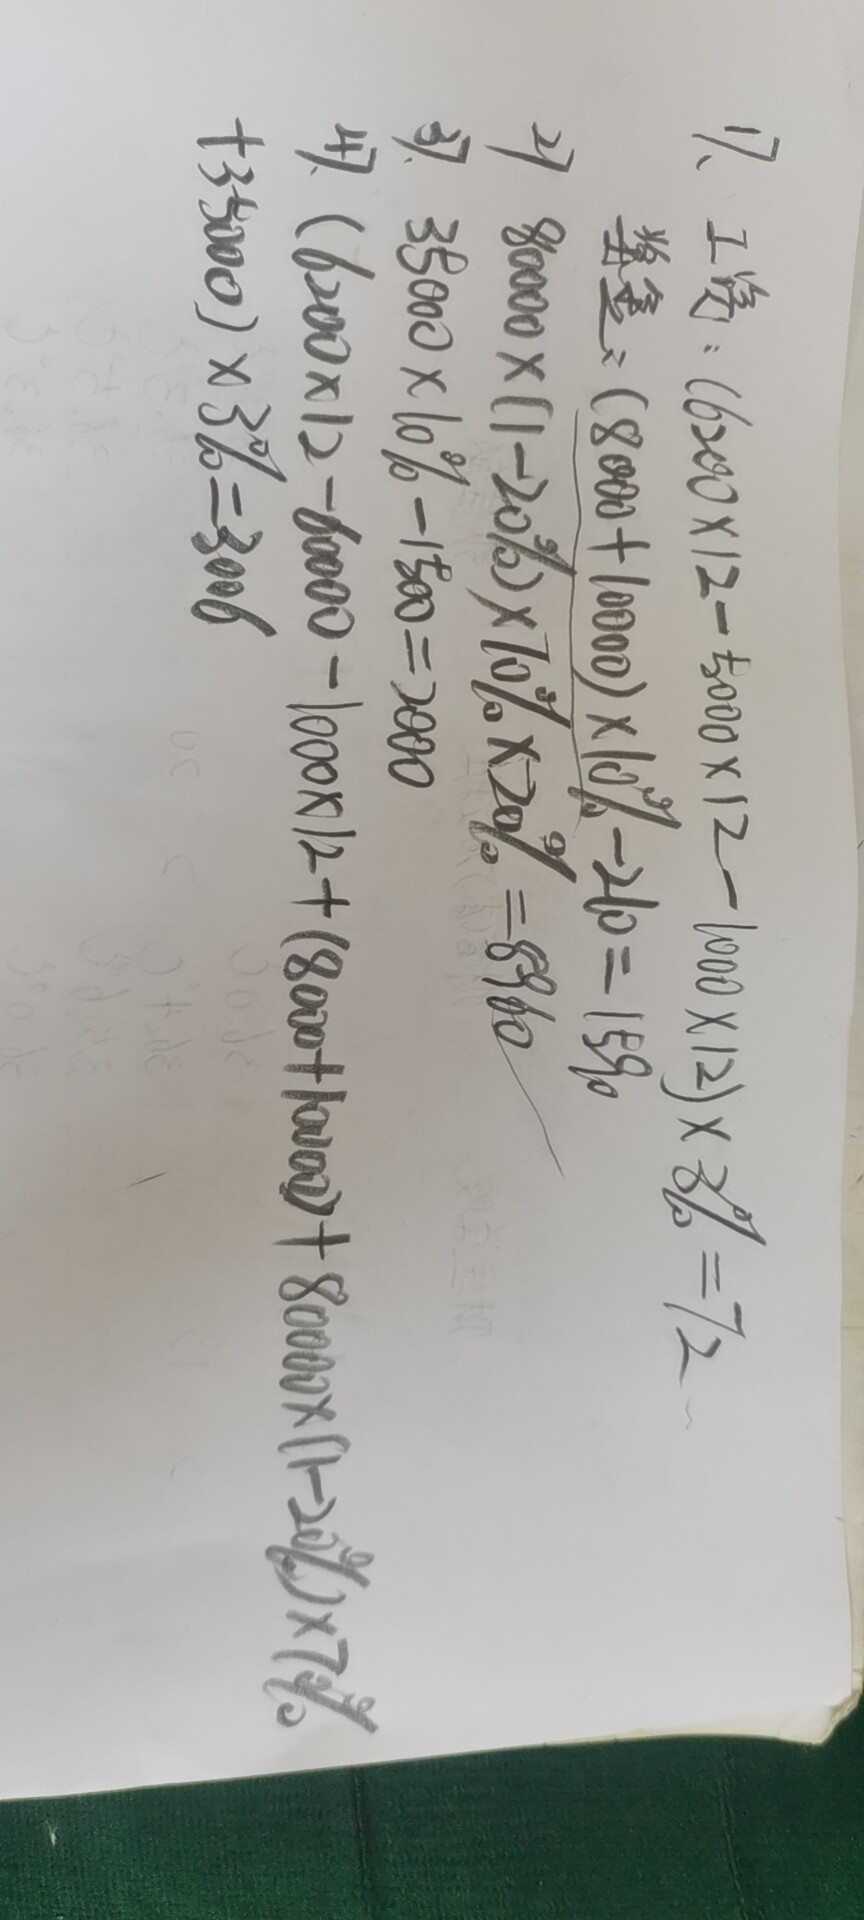 1)、工资:(6200×12-5000×12-1000×12)×3%=72
奖金:(8000+10000)×10%-210=1590
2) 80000×(1-20%)×70%×20%=8960
3). 35000×10%-1500=2000
4). (6200×12-60000-1000×12+(8000+10000)+80000×(1-20%)×70%
+35000)×3%=3006